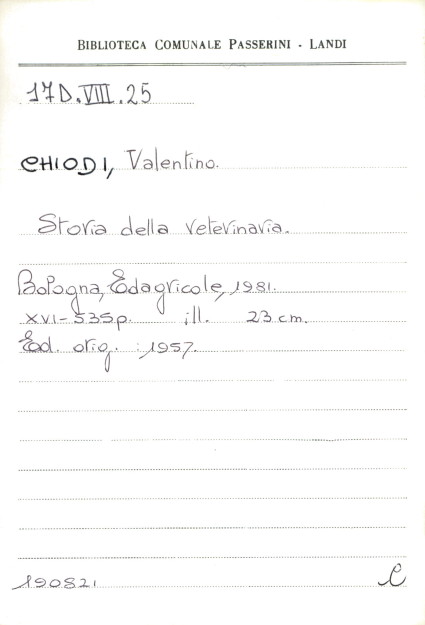 BIBLIOTECA COMUNALE PASSERINI - LANDI
17D.VIII.25
CHIODI, Valentino.
Storia della veterinaria.
Bologna, Edagricole, 1981.
XVI-535p. ill. 23 cm.
Ed. orig. : 1957.
190821 C